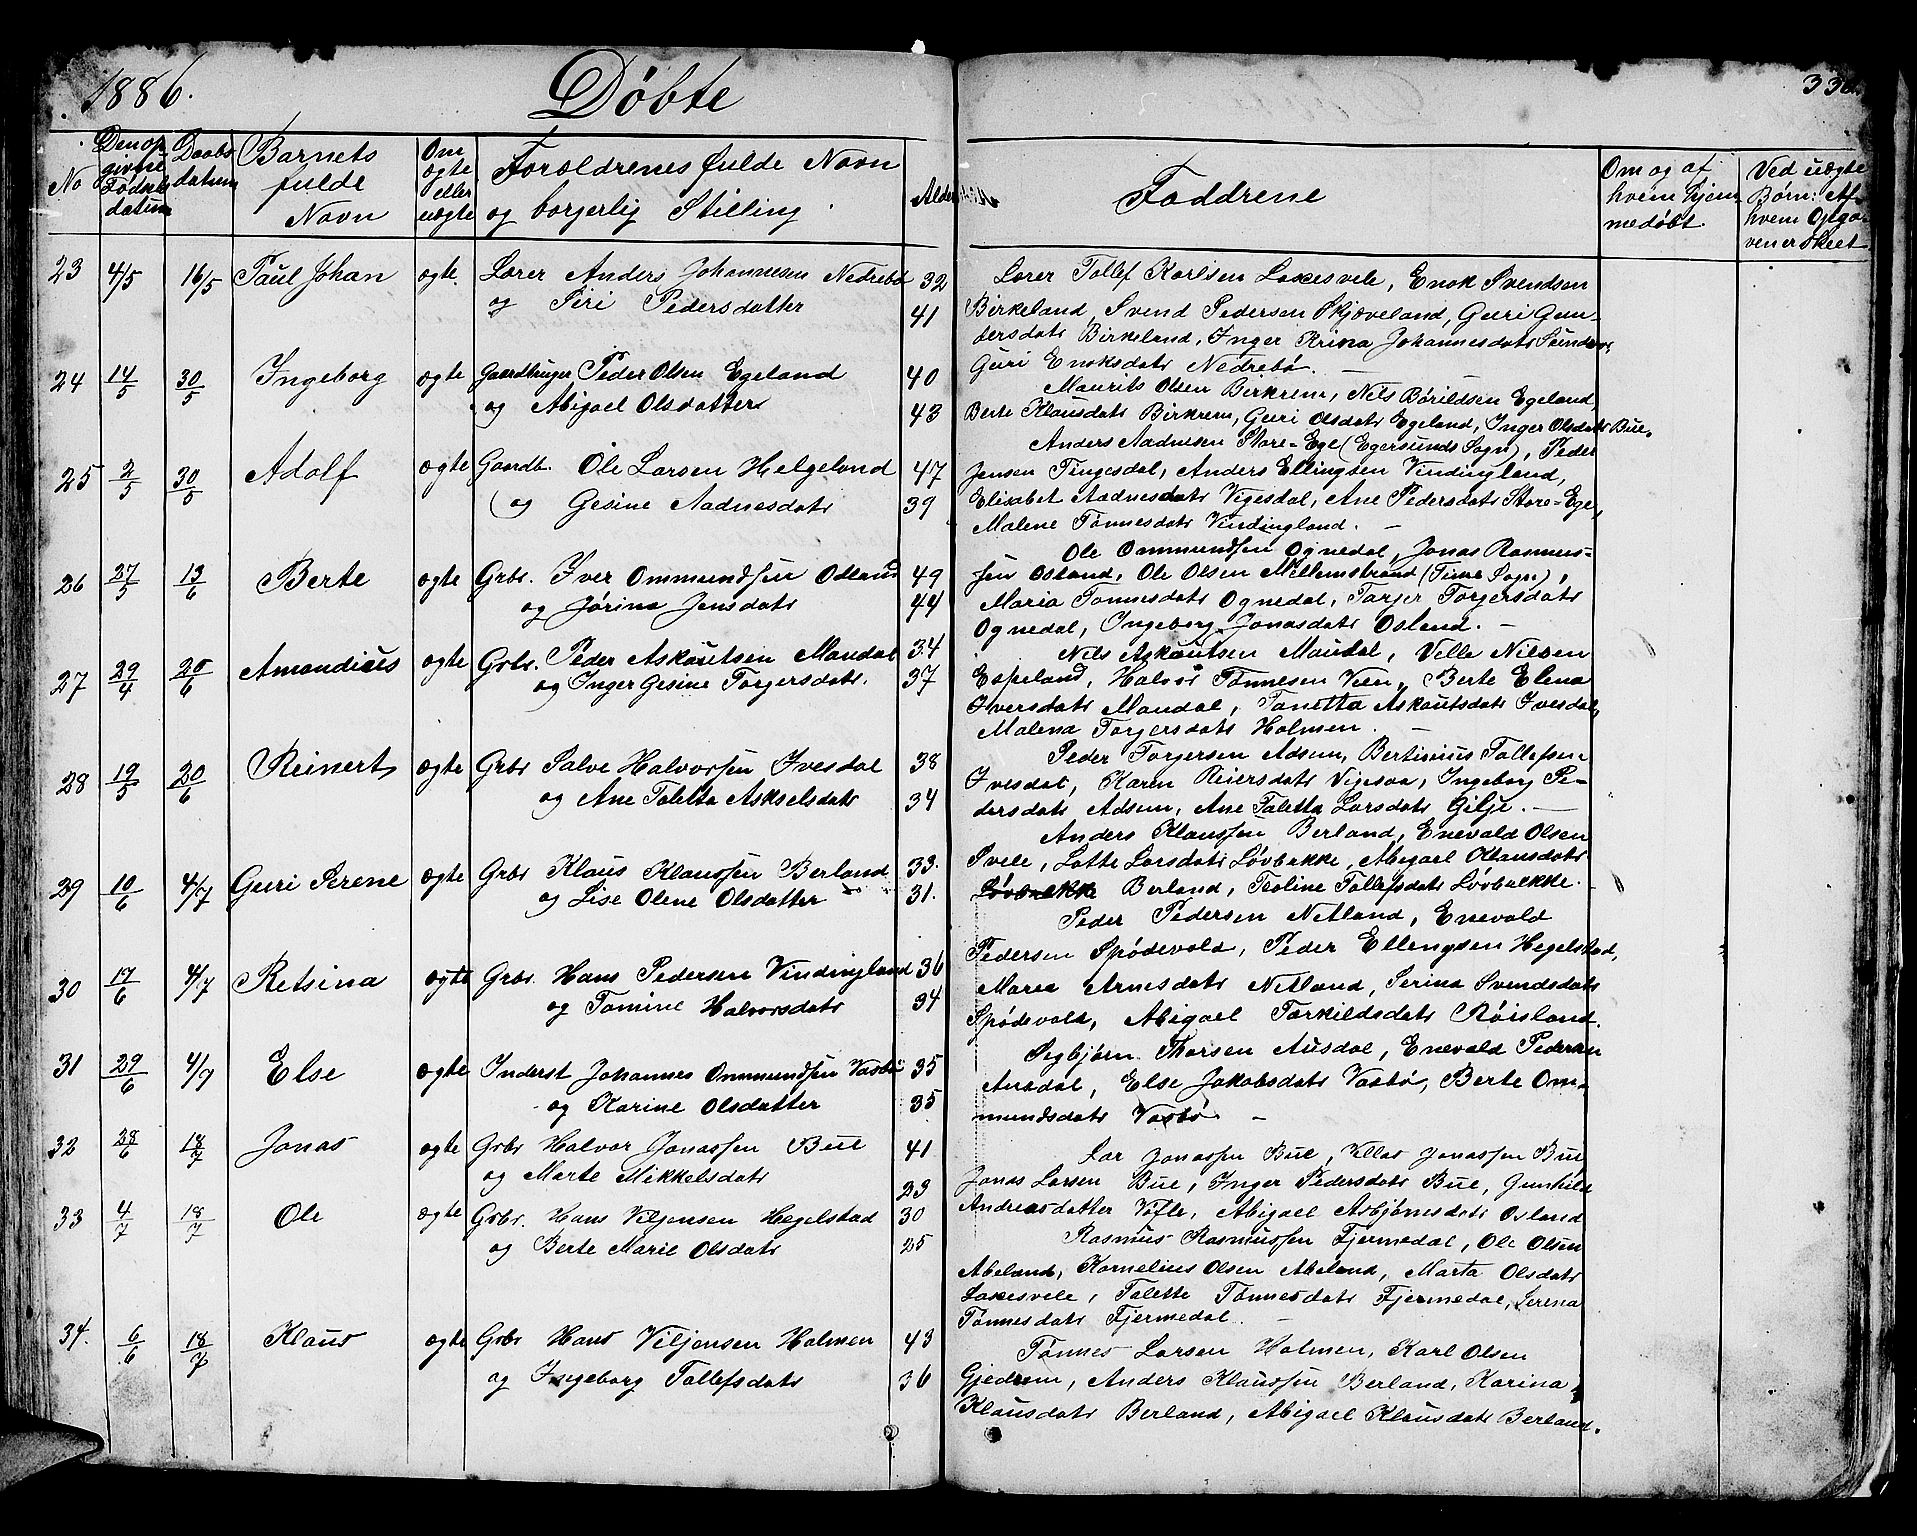 1886.
Døbte
336.
No
Den opgivne Fødselsdatum
Daabsdatum
Barnets fulde Navn
Om ægte eller uægte
Forældrenes fulde Navn og borgerlig Stilling.
Alder
Faddrene
Om og af hvem hjemmedøbt.
Ved uægte Børn: Af hvem Opgaven er skeet
23 4/5 16/5 Paul Johan ægte. Lærer Anders Johannesen Nedrebø 32
og Siri Pedersdatter 41
Lærer Tollef Karlsen Laxesvele, Enok Svendsen
Birkeland, Svend Pedersen Skjæveland, Guri Gun-
dersdatr Birkeland, Inger Krina Johannesdatr
Guri Enoksdatr Nedrebø. —
24 14/5 30/5 Ingeborg ægte Gaardbruger Peder Olsen Egeland 40
og Abigael Olsdatter 43
Maurits Olsen Birkrem, Nils Børildsen Egeland,
Berte Klausdatr Birkrem, Guri Olsdatr Egeland, Inger Olsdatr Bue.
25 2/5 30/5 Adolf ægte Gaardb. Ole Larsen Helgeland 47
og Gesine Aadnesdatr 39
Anders Aadnesen Store-Ege (Egersunds Sogn), Peder
Jensen Tingesdal, Anders Ellingsen Vindingland,
Elisabet Aadnesdatr Vigesdal, Ane Pedersdatr Store-Ege,
Malene Tønnesdatr Vindingland. —
26 27/5 13/6 Berte ægte Grbr. Iver Ommundsen Odland 49
og Jørina Jensdatr 44
Ole Ommundsen Ognedal, Jonas Rasmus-
sen Osland, Ole Olsen Mellemstrand (Time Sogn),
Maria Tønnesdatr Ognedal, Tarjer Torgersdatr
Ognedal, Ingeborg Jonasdatr Osland. —
27 29/4 20/6 Amandius ægte Grbr. Peder Askautsen Maudal 34
og Inger Gesine Torgersdatr. 37
Nils Askautsen Maudal, Ville Nilsen
Espeland, Halvor Tønnesen Veen, Berte Elena
Iversdatr Maudal, Tanetta Askautsdatr Ivesdal,
Malena Torgersdatr Holmen. —
28 19/5 20/6 Reinert ægte Grbr Salve Halvorsen Ivesdal 38
og Ane Taletta Askselsdatr 34
Peder Torgersen Adsem, Bertinius Tollefsen
Ivesdal, Karen Reiersdatr Vigesaa, Ingeborg Pe-
dersdatr Adsem, Ane Taletta Larsdatr Gilje. —
29 10/6 4/7 Guri Serene ægte Grbr Klaus Klaussen Berland 33.
og Lise Olene Olsdatter 31.
Anders Klaussen Berland, Enevald Olsen
Svele, Lotte Larsdatr Løvbrekke, Abigael Klausdatr
Løvbrekke Berland, Teoline Tollefsdatr Løvbrekke.
30 17/6 4/7 Retsina ægte Grbr. Hans Pedersen Vindingland 36
og Tomine Halvorsdatr 34
Peder Pedersen Netland, Enevald
Pedersen Spødevold, Peder Ellengsen Hegelstad,
Marea Arnesdatr Netland, Serina Svendsdatr
Spødevold, Abigael Torkildsdatr Røisland.
31 29/6 4/9 Else ægte Inderst Johannes Ommundsen Vasbø 35
og Karine Olsdatter 35
Segbjørn Thorsen Ausdal, Enevald Pedersen
Ausdal, Else Jakobsdatr Vasbø, Berte Om-
mundsdatr Vasbø —
32 28/6 18/7 Jonas ægte Grbr Halvor Jonassen Bue 41
og Marte Mikkelsdatr 23
Lar Jonassen Bue, Villas Jonassen Bue,
Jonas Larsen Bue, Inger Pedersdatr Bue, Gunhild
Andreasdatter Vasle, Abigael Asbjørnsdatr Osland
33 4/7 18/7 Ole ægte Grbr. Hans Viljensen Hegelstad 30
og Berte Marie Olsdatr 25
Rasmus Rasmussen Fjermedal, Ole Olsen
Abeland, Kornelius Olsen Abeland, Marta Olsdatr
Laxesvele, Talette Tønnesdatr Fjermedal, Serena
Tønnesdatr Fjermedal. —
34. 6/6 18/7 Klaus ægte Grbr Hans Viljensen Holmen 43
og Ingeborg Tollefsdatr 36
Tønnes Larsen Holmen, Karl Olsen
Gjedrem, Anders Klaussen Berland, Karina
Klausdatr Berland, Abigael Klausdatr Berland.